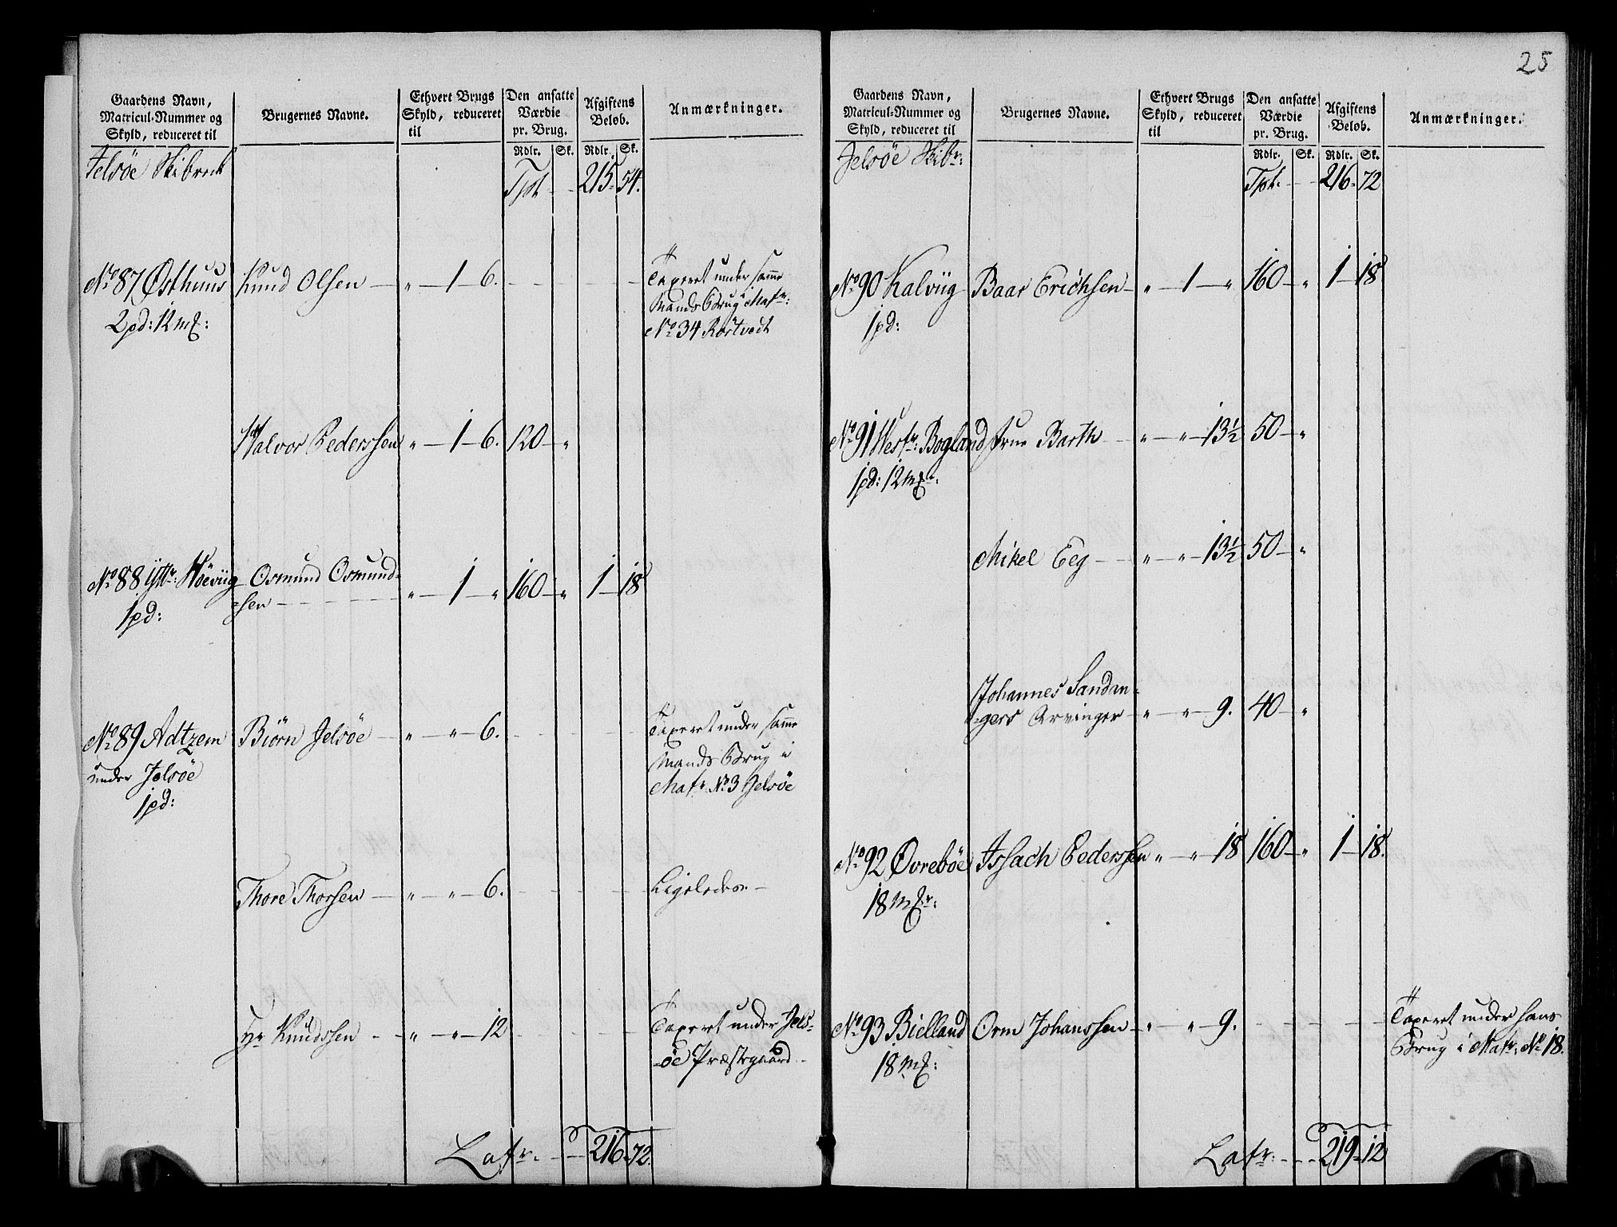 25
Gaardens Navn, Matricul-Nummer og Skyld, reduceret til
Brugernes Navne.
Ethvert Brugs Skyld, reduceret til
Den ansatte Værdie pr. Brug.
Afgiftens Beløb.
Anmærkninger.
Rdlr. Sk. Rdlr. Sk.
Jelsöe Skibred Tpt. 215. 54.
No 87 Østhuus Knud Olsen " 1 6. Taxeret under samme
2 pd: 12 mk: Mands Brug i Matr:
No 34 Røstvedt
Halvor Pederssen " 1 6. 120 "
No 88 Ytt: Höeviig Osmund Osmund-
1 pd: sen " 1 " 160 " 1 18
No 89 Adtzem Biørn Jelsöe " " 6. Taxeret under samme
under Jelsöe Mands Brug i
1 pd: Matr. No 3 Jelsöe
Thore Thorsen " " 6. Ligeledes
Hr Knudssen " " 12 Taxeret under Jels-
öe Præstegaard
Latr. 216. 72.
Gaardens Navn, Matricul-Nummer og Skyld, reduceret til
Brugernes Navne.
Ethvert Brugs Skyld, reduceret til
Den ansatte Værdie pr. Brug.
Afgiftens Beløb.
Anmærkninger.
Rdlr. Sk. Rdlr. Sk.
Jelsöe Skibr: Tpt. 216. 72
No 90 Kalviig Baar Erichsen " 1 " 160 " 1 18
1 pd:
No 91 Westr: Bogland Frue Barth " " 13½ 50 "
1 pd: 12 mk:
Mikel Eeg " " 13½ 50 "
Johannes Sandan-
gers Arvinger " " 9. 40 "
No 92 Øvrebøe Issach Pederssen " " 18 160 " 1 18.
18 mkr:
No 93 Bielland Orm Johanssen " " 9. Taxeret under hans
18 mk: Brug i Matr: No 18.
Latr: 219. 12